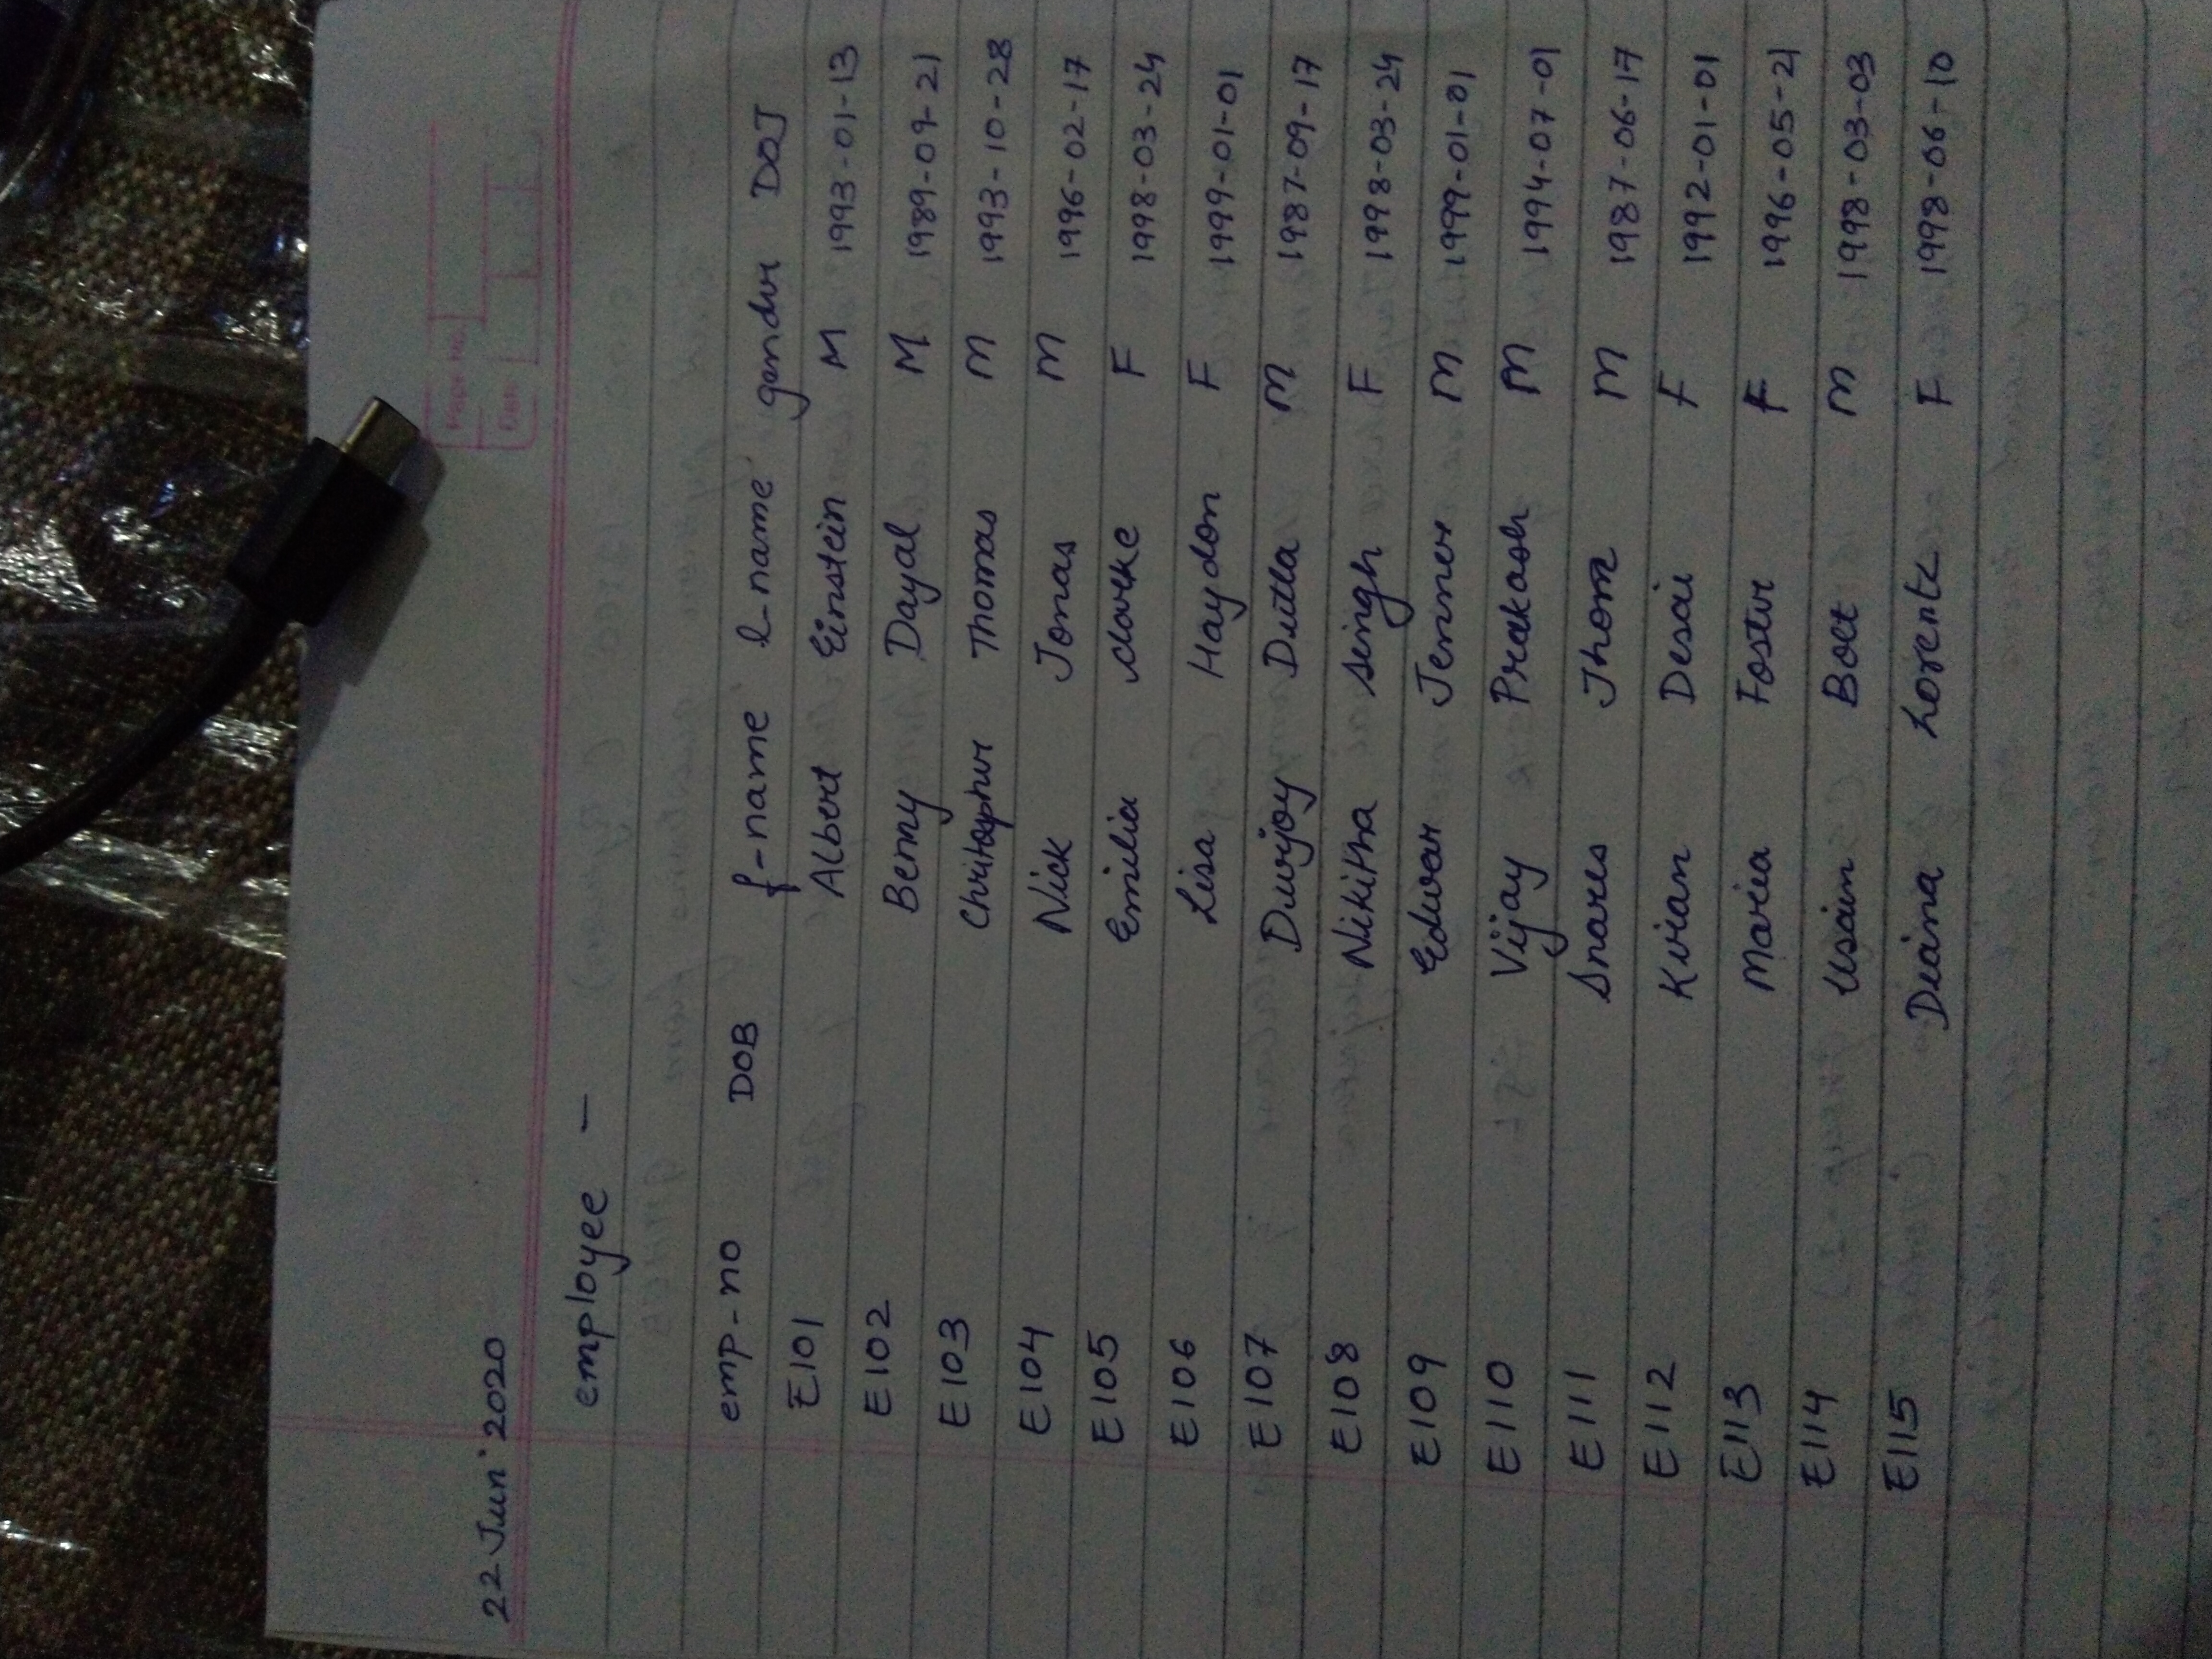 Page No.
Date
22 Jun' 2020
employee —
emp-no DOB f-name l-name gender DOJ
E101 Albert Einstein M 1993-01-13
E102 Benny Dayal M 1989-09-21
E103 Chritospher Thomas M 1993-10-28
E104 Nick Jonas M 1996-02-17
E105 Emilia clarke F 1998-03-24
E106 Lisa Haydon F 1999-01-01
E107 Dwijoy Dutta M 1987-09-17
E108 Nikitha singh F 1998-03-24
E109 Edwar Jenner M 1999-01-01
E110 Vijay Prakash M 1994-07-01
E111 Snares Thom M 1987-06-17
E112 Kiran Desai F 1992-01-01
E113 Maria Foster F 1996-05-21
E114 Usain Bolt M 1998-03-03
E115 Diana Lorentz F 1998-06-10